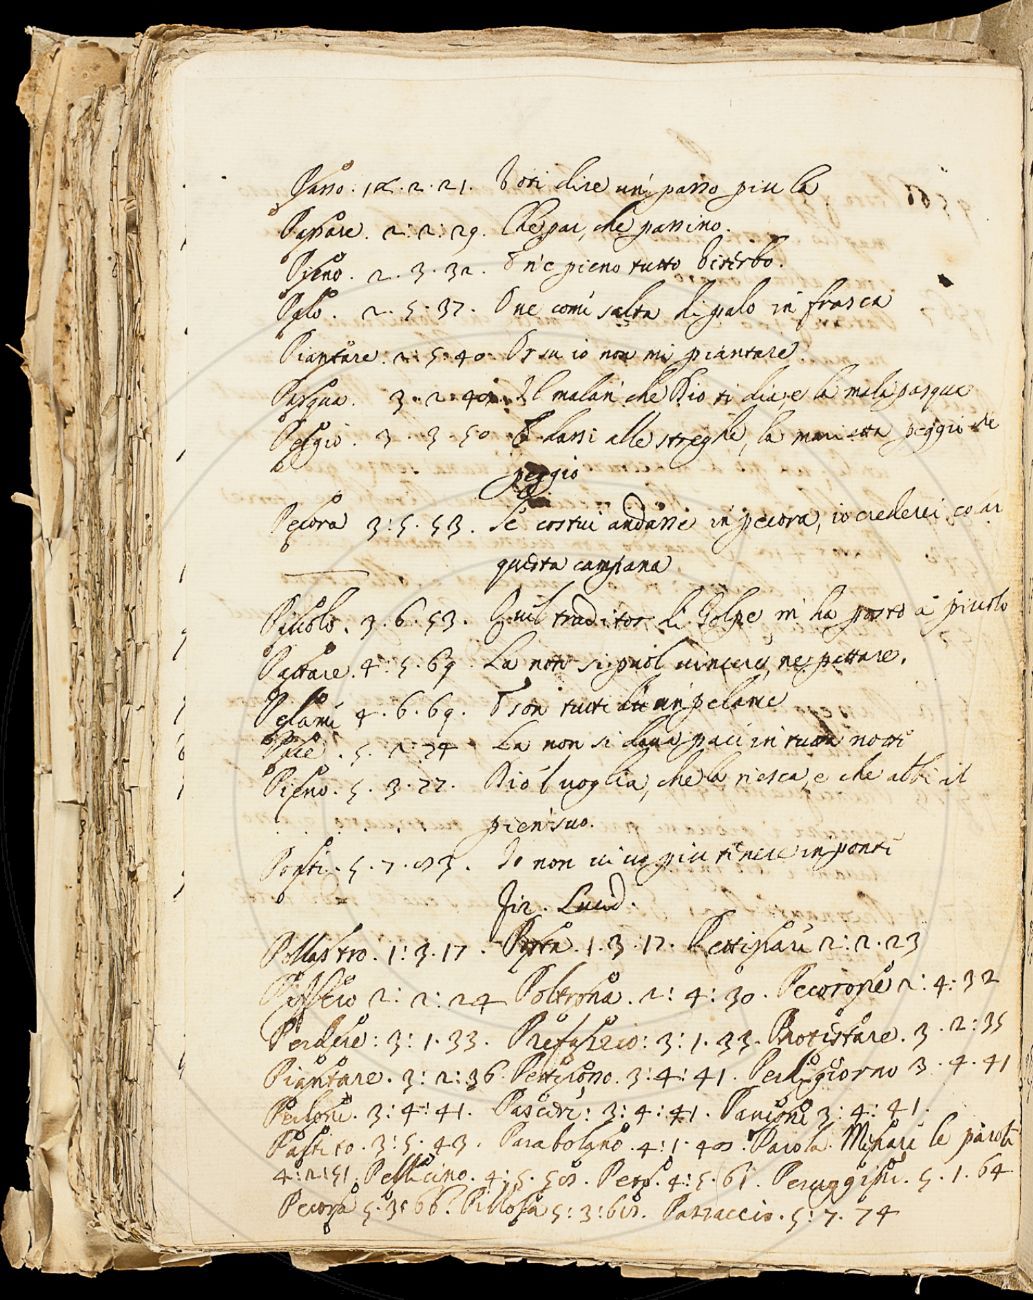 Passo. 1.2.21. Vosi dire un passo piu la
Passare. 2:2:29. Che par, che passino.
Pieno. 2.3.32. E n'è pieno tutto Viterbo.
Palo. 2.5.37. One come salta di palo in frasca
Piantare. 2:5:40 Orsu io non mi piantare.
Pasqua. 3.2.4 Il malan che Dio ti dia, e la mala pasqua
Peggio. 3.3.50 E darsi alle streghe, la maniera peggio de
peggio
Pecora 3:5.53. Se costui andasse in pecora, io crederei, co
questa campana
Pivolo. 3.6.53. Quel traditor di Golpe m'ha posto a pivolo
Pettare. 4:5.69 La non si puol vincere, ne pettare.
Pelame 4.6.69. E son tutti d'un pelame
Pace. 5.2.74 La non si dava pace in tutta notte
Pieno. 5.3.77. Dio 'l voglia, che la riesca, e che abbi il
pien suo.
Ponti. 5.7.83. Io non vi vo piu tenere in ponti
Fir. Lucid.
Pollastro. 1:3.17. 1.3.17. Pettinare 2:2.23
2:2:24 Poltrona. 2:4:30. Pecorone 2:4:32
Perdere: 3:1.33. 3:1.33. Protestare. 3.2:35
Piantare. 3:2:36 3:4:41. Per giorno 3.4.41
Perdoni. 3:4:41. Pascere: 3:4:41. Pancione 3:4:41.
Pastito. 3:5.43. Parabolano 4:1.48. Parola. Menare le parole
4:2:51. Pelliccino. 4:5.58. 4:5.61. 5.1.64
Pecora 5:3:66. Pillola 5:3:68. Pazzaccio. 5:7.74